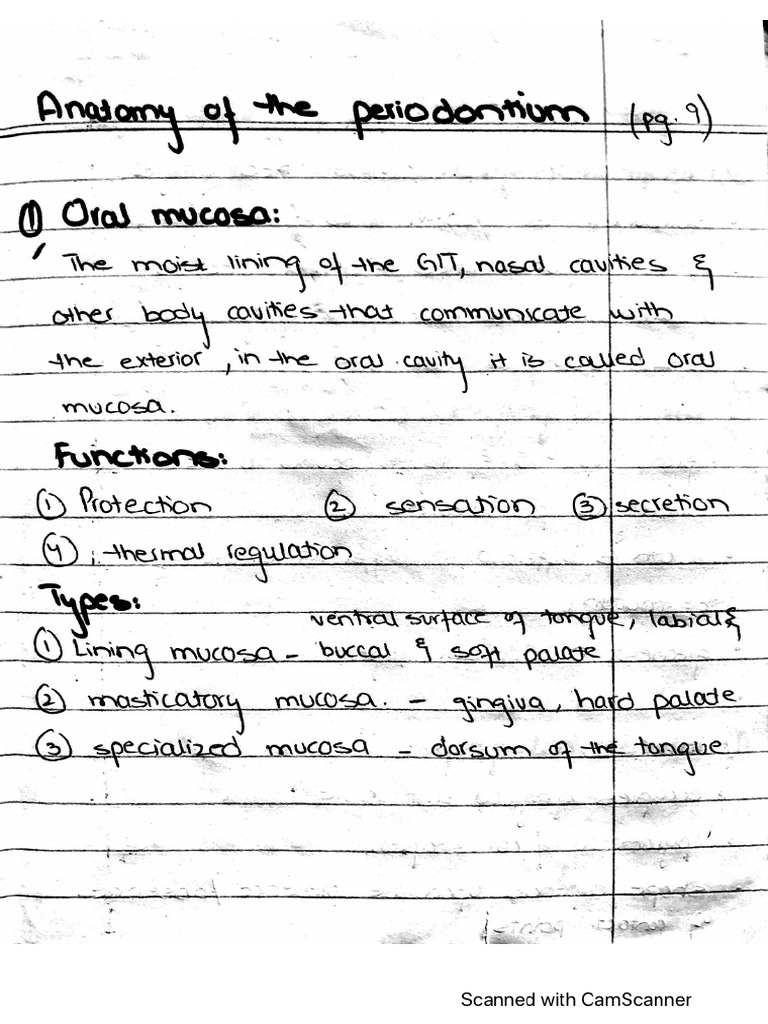 Anatomy of the periodontium (pg. 9)
① Oral mucosa:
The moist lining of the GIT, nasal cavities &
other body cavities that communicate with
the exterior, in the oral cavity it is called oral
mucosa.
Functions:
① Protection ② sensation ③ secretion
④ thermal regulation
Types:
ventral surface of tongue, labial &
① Lining mucosa - buccal & soft palate
② masticatory mucosa. - gingiva, hard palate
③ specialized mucosa - dorsum of the tongue
Scanned with CamScanner